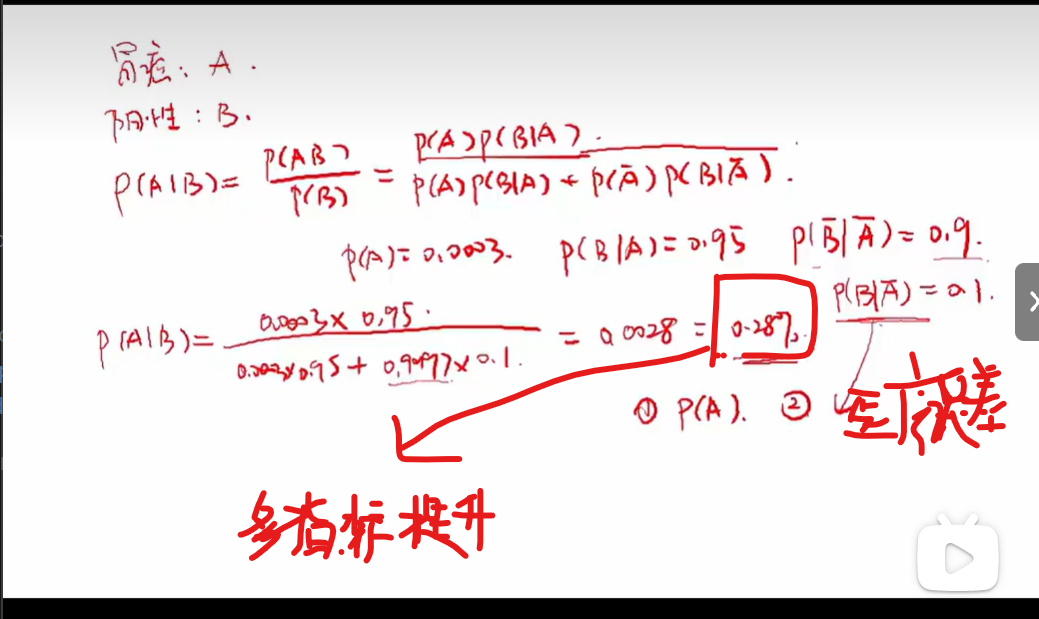 胃癌: A.
阳性: B.
P(A|B)= P(AB)/P(B) = P(A)P(B|A)./P(A)P(B|A) + P(Ā)P(B|Ā).
P(A)= 0.0003. P(B|A)= 0.95 P(B̄|Ā)= 0.9.
P(B|Ā)= 0.1.
P(A|B)= 0.0003×0.95./0.0003×0.95 + 0.9997×0.1. = 0.0028 = 0.28%.
① P(A). ②
多指标提升